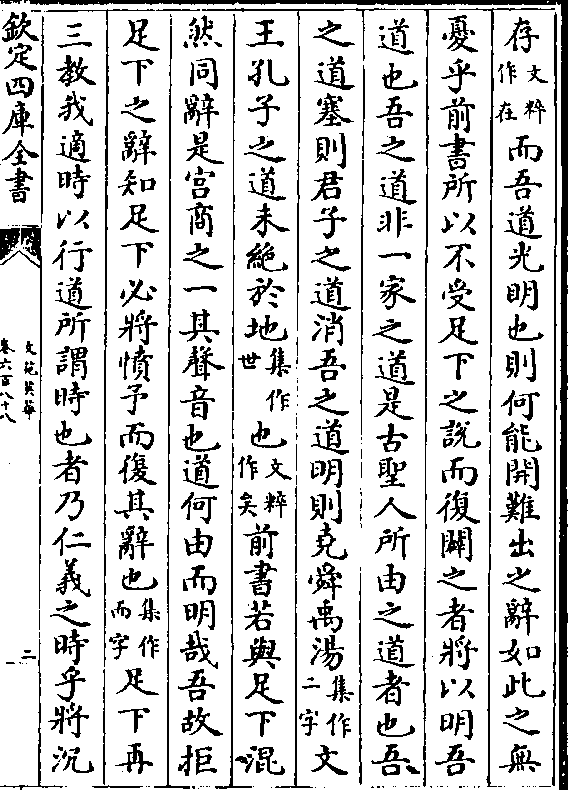 存文粹作在而吾道光明也則何能開難出之辭如此之無
憂乎前書所以不受足下之說而復闢之者將以明吾
道也吾之道非一家之道是古聖人所由之道者也吾
之道塞則君子之道消吾之道明則堯舜禹湯集作二字文
王孔子之道未絕於地集作世也文粹作矣前書若與足下混
然同辭是宮商之一其聲音也道何由而明哉吾故拒
足下之辭知足下必將憤予而復其辭也集作而字足下再
三教我適時以行道所謂時也者乃仁義之時乎將沉
欽定四庫全書
文苑英華
卷六百八十八
二